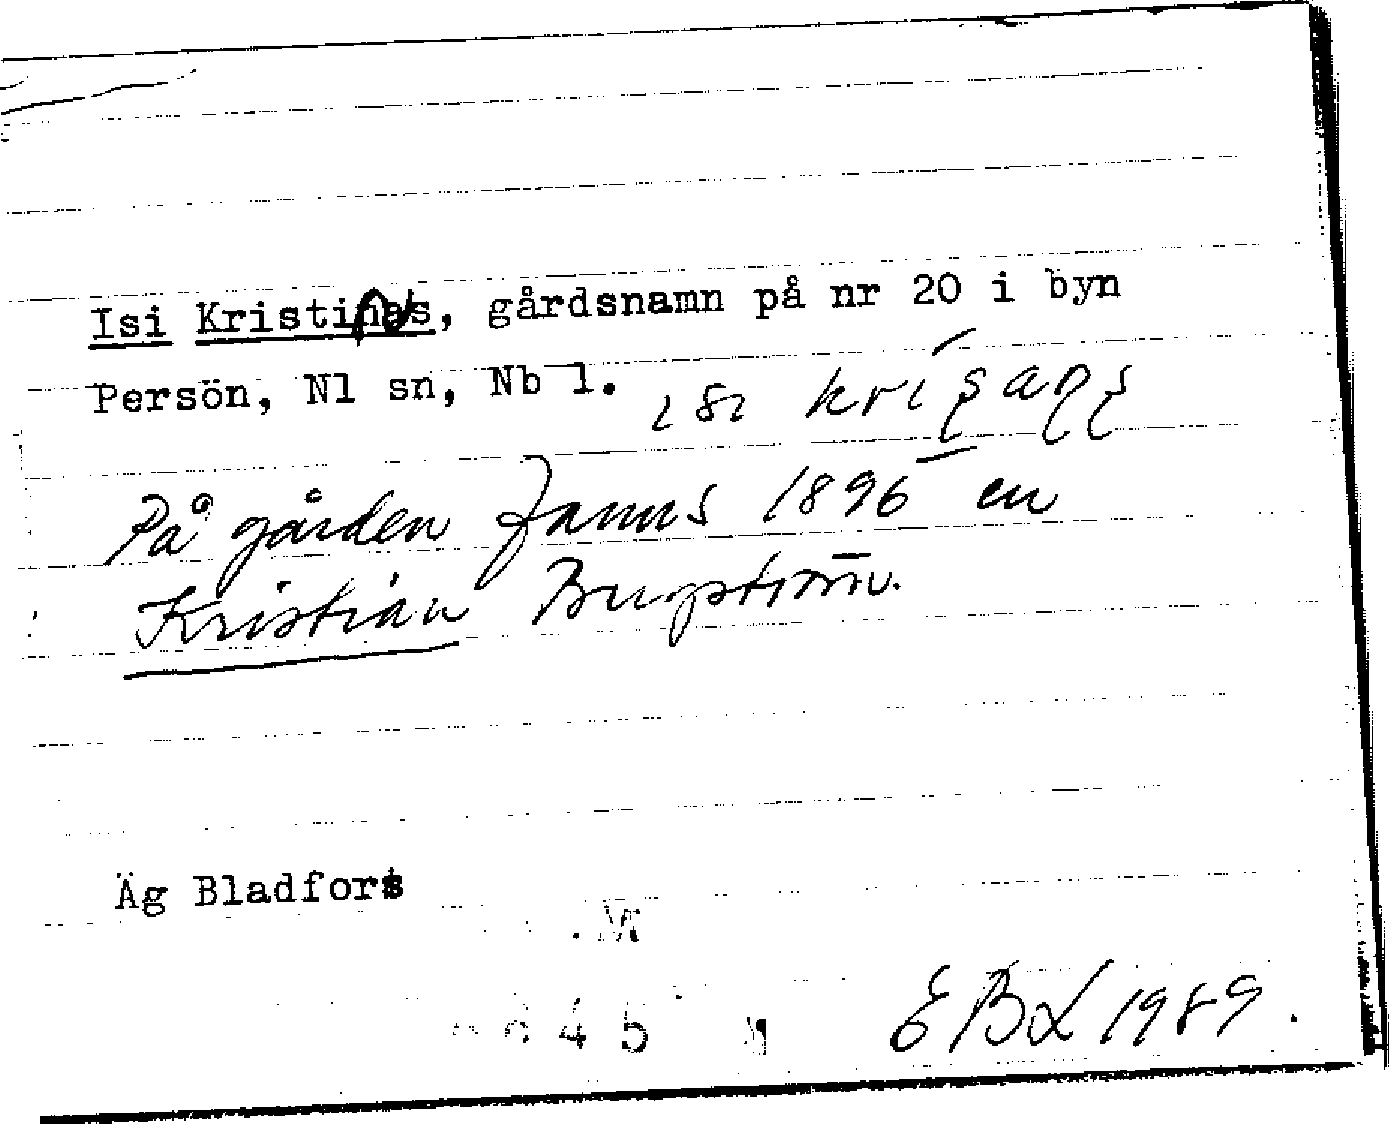 Isi Kristinas, gårdsnamn på nr 20 i byn
Persön, Nl sn, Nb l.
På gården fanns 1896 en
Kristian Bergström.
Äg Bladfors
645
EBL 1989.